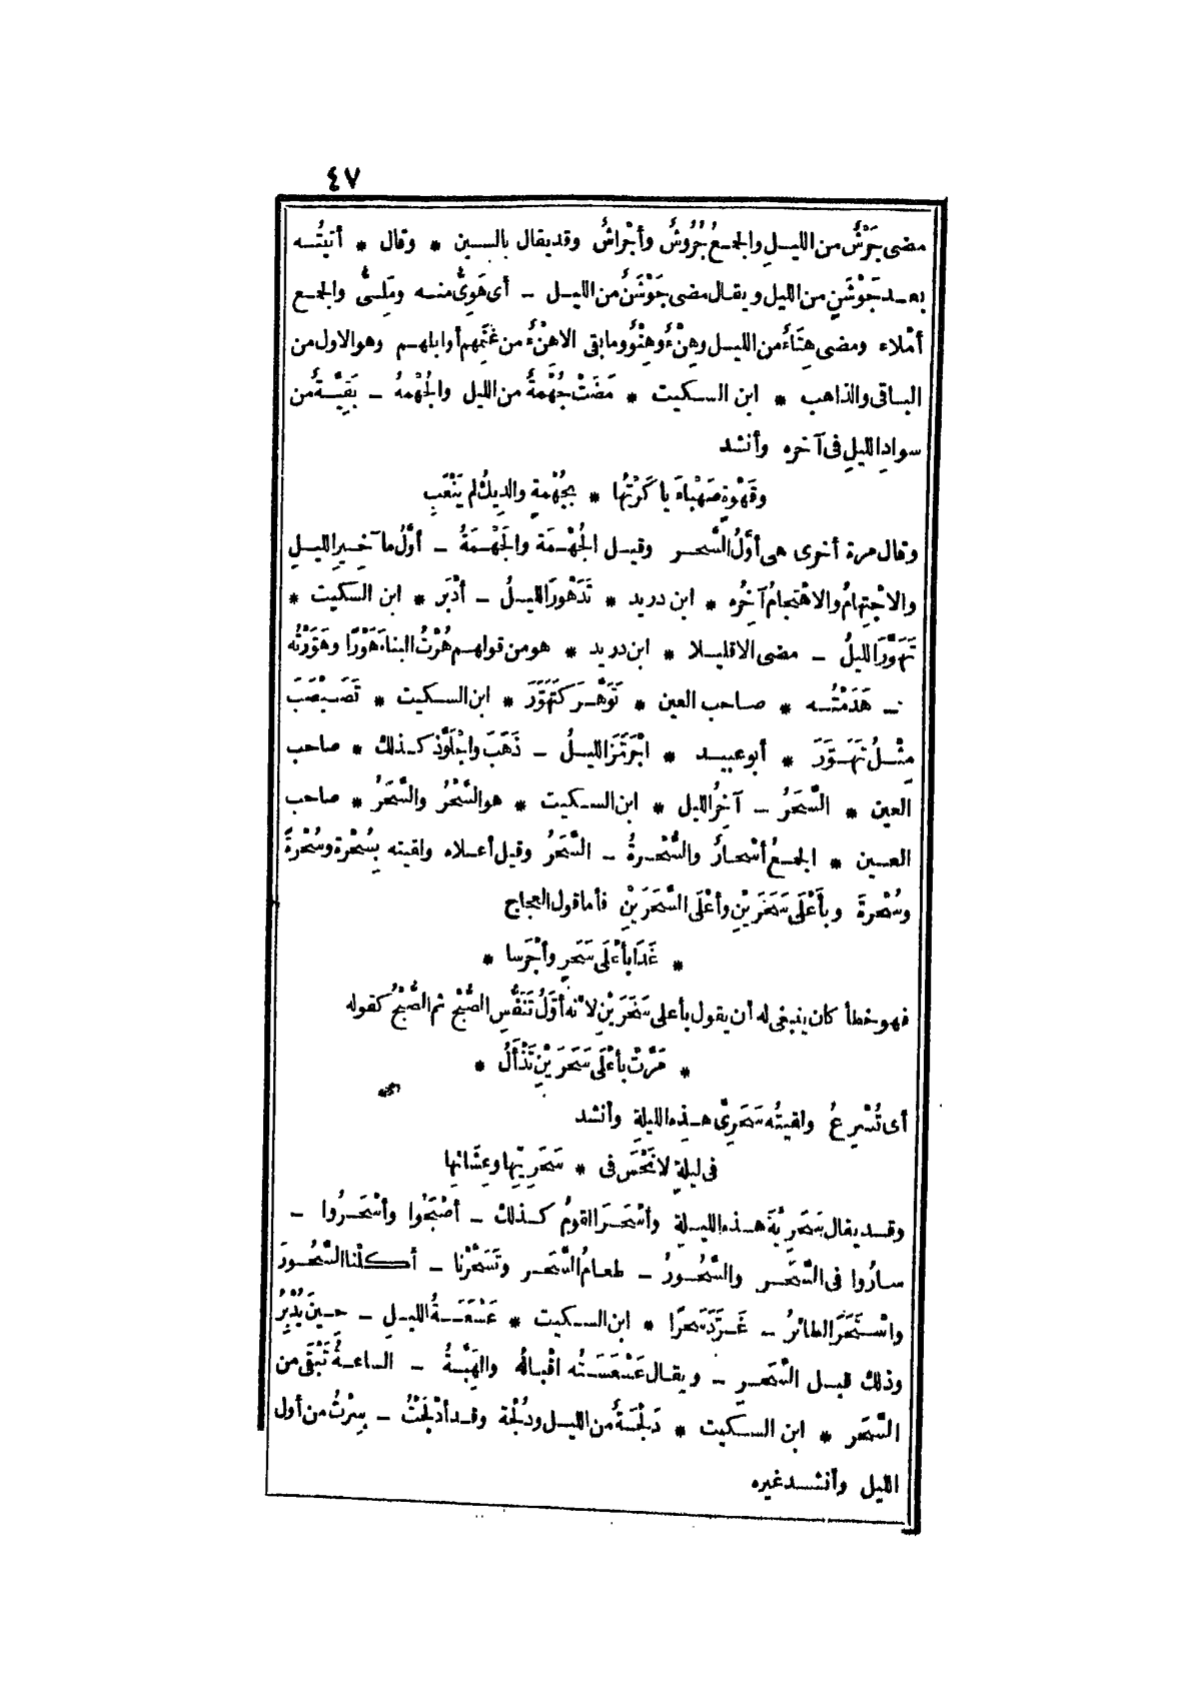 ٤٧
مضى جَرْشٌ من الليلِ والجمعُ جُرُوشٌ وأجْراشٌ وقد يقال بالسين * وقال * أتيتُه
بعد جَوْشَنٍ من الليل ويقال مضى جَوْشَنٌ من الليل – أى هَوِىٌّ منه ومَلِىٌّ والجمع
أمْلاء ومضى هِتَاءٌ من الليل وهِنْءٌ وهِنْوٌ وما بقى الا هِنْءٌ من غَنَمِهم أو ابلهم وهو الاول من
الباقى والذاهب * ابن السكيت * مَضَتْ جُهْمةٌ من الليل والجُهْمةُ – بَقِيَّةٌ من
سوادِ الليلِ فى آخره وأنشد
وقَهْوةٍ صَهْباءَ باكَرْتُها * بجُهْمةٍ والديكُ لم يَنْعَبِ
وقال مرة أخرى هى أوَّلُ السَّحر وقيل الجُهْمَة والجَهْمَةُ – أوَّلُ مآخِيرِ الليلِ
والاجْتِهامُ والاهْتِجامُ آخِرُه * ابن دريد * تَدَهْورَ الليلُ – أدْبَر * ابن السكيت *
تَهَوَّرَ الليلُ – مضى الا قليلا * ابن دريد * هو من قولهم هُرْتُ البناءَ هَوْرًا وهَوَّرْتُه
– هَدَمْتُه * صاحب العين * تَوَهَّر كتَهَوَّرَ * ابن السكيت * تَصَبْصَبَ
مِثْلُ تَهَوَّرَ * أبو عبيد * اجْرَمَّزَ الليلُ – ذَهَبَ واجْلَوَّذ كذلك * صاحب
العين * السَّحَرُ – آخِرُ الليل * ابن السكيت * هو السَّحْرُ والسَّحَرُ * صاحب
العين * الجمعُ أسْحارٌ والسُّحْرةُ – السَّحَرُ وقيل أعلاه ولقيته بسُحْرة وسُحْرةً
وسُحْرةَ وبأَعْلَى سَحَرَيْنِ وأعْلَى السَّحَرَيْنِ فأما قول العجاج
* غَدَا بأعْلَى سَحَرٍ وأجْرَسا *
فهو خطأ كان ينبغى له أن يقول بأعلى سَحَرَيْنِ لانه أوَّلُ تَنَفُّسِ الصُّبْحِ ثم الصُّبْحُ كقوله
* مَرَّتْ بأعْلَى سَحَرَيْنِ تَذْأَلُ *
أى تُسْرِعُ ولقيتُه سَحَرِىَّ هذه الليلةِ وأنشد
فى ليلةٍ لا نَحْسَ فى * سَحَرِيّها وعِشائِها
وقد يقال سَحَرِيَّةَ هذه الليلةِ وأسْحَرَ القومُ كذلك – أصْبَحُوا وأسْحَرُوا –
سارُوا فى السَّحَر والسَّحُورُ – طعامُ السَّحَر وتَسَحَّرْنا – أكلْنا السَّحُورَ
واسْتَحَرَ الطائرُ – غَرَّدَ سَحَرًا * ابن السكيت * عَسْعَسَةُ الليلِ – حينَ يُدْبِرُ
وذلك قبل السَّحَرِ – ويقال عَسْعَسَتُه اقْبالُه والهَبَّةُ – الساعةُ تَبْقَى من
السَّحَر * ابن السكيت * دَلْجَةٌ من الليل ودُلْجة وقد أدْلَجْتُ – سِرْتُ من أول
الليل وأنشد غيره